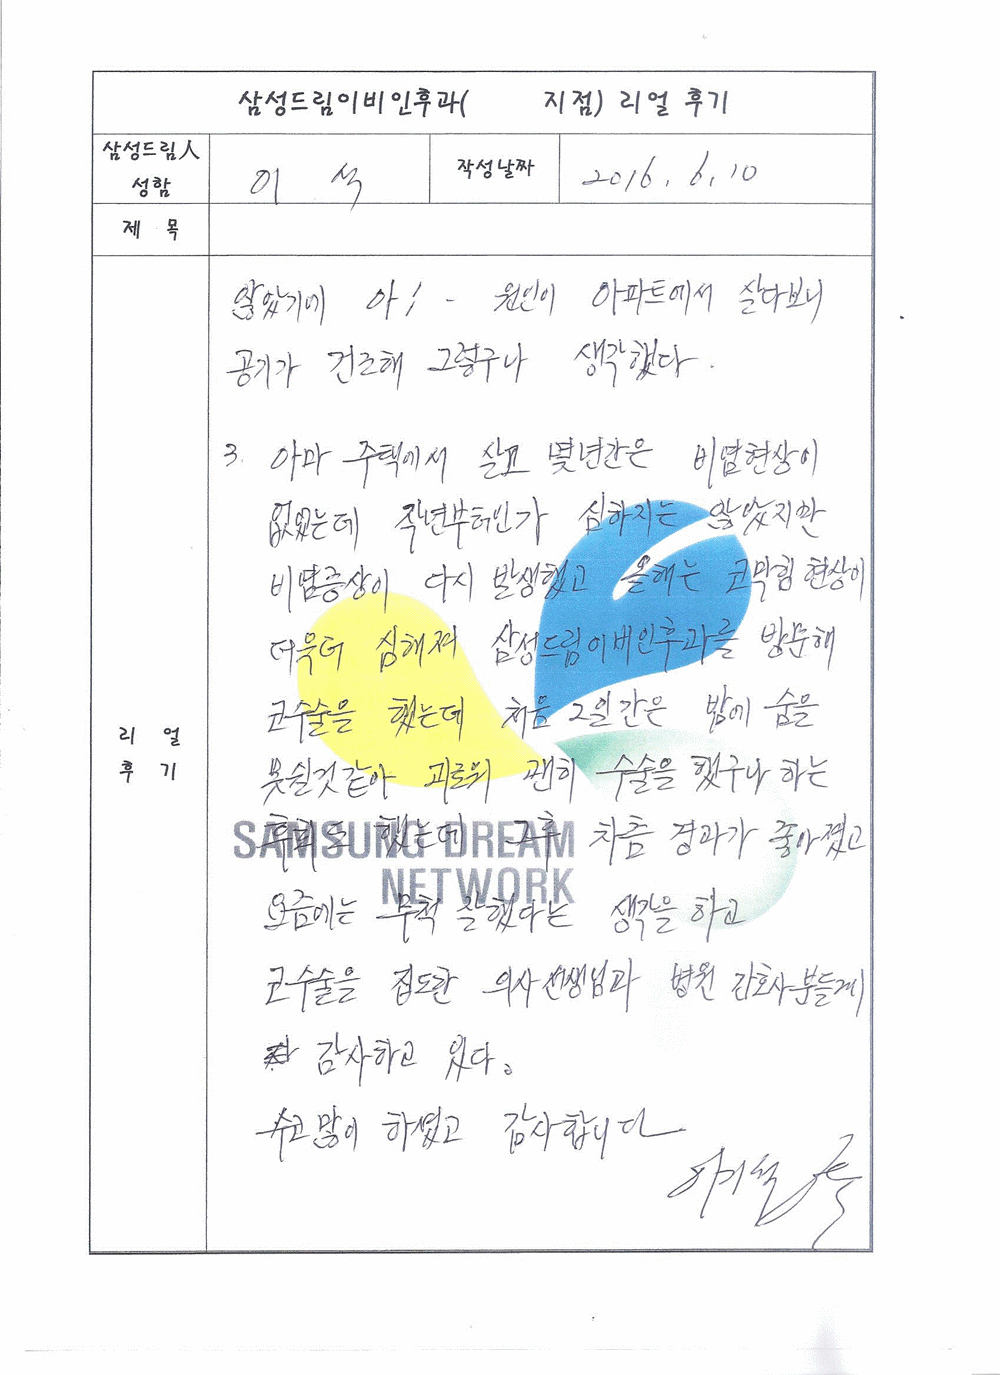 삼성드림이비인후과(          지점) 리얼 후기
삼성드림人
성함
이 석
작성날짜
2016. 6. 10
제 목
않았기에 아! - 원인이 아파트에서 살다보니
공기가 건조해 그렇구나 생각했다.
3. 아마 주택에서 살고 몇년간은 비염현상이
없었는데 작년부터인가 심하지는 않았지만
비염증상이 다시 발생했고 올해는 코막힘 현상이
더욱더 심해져 삼성드림이비인후과를 방문해
코수술을 했는데 처음 2일간은 밤에 숨을
못쉴것 같아 괴로워 괜히 수술을 했구나 하는
후회도 했는데 그후 차츰 경과가 좋아졌고
요즘에는 무척 잘했다는 생각을 하고
코수술을 집도한 의사선생님과 병원 간호사분들게
감사하고 있다.
수고 많이 하셨고 감사합니다
리 얼
후 기
SAMSUNG DREAM
NETWORK